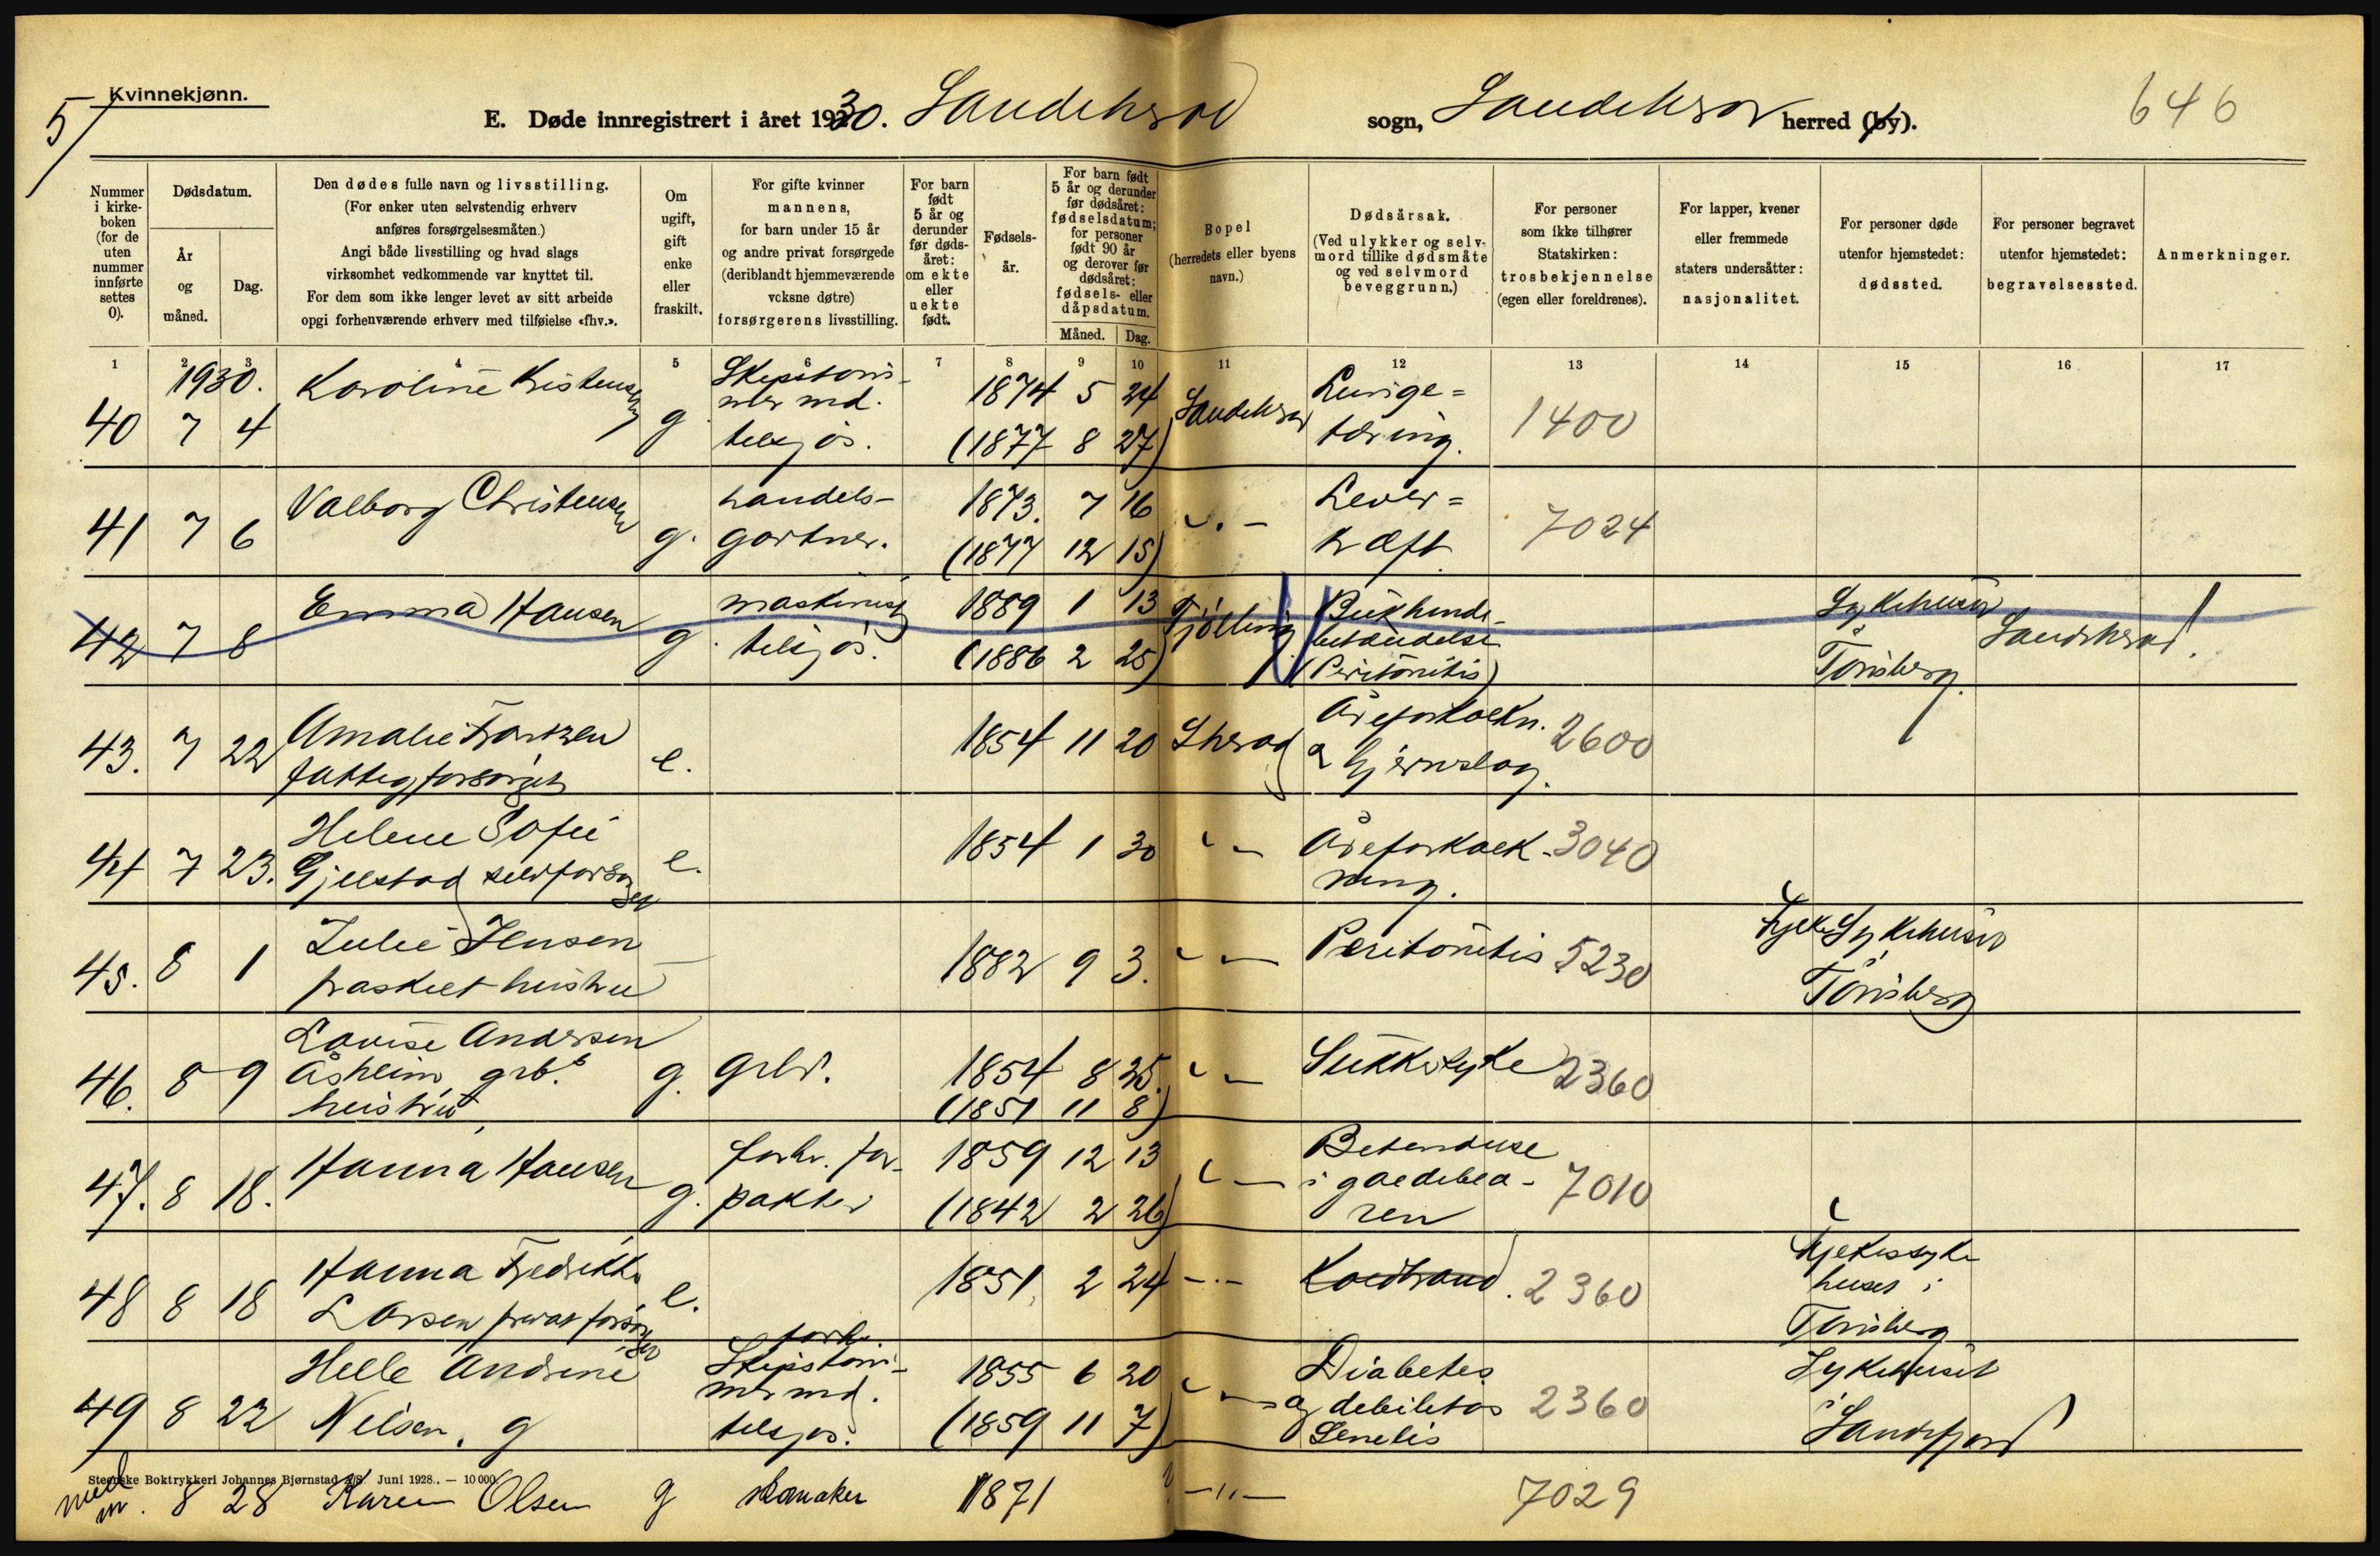 Kvinnekjønn.
5
E. Døde innregistrert i året 1930. Sandeherad sogn, Sandeherad herred (by).
646
Nummer i kirke-boken (for de uten nummer innførte settes 0).
Dødsdatum.
År og måned.
Dag.
Den dødes fulle navn og livsstilling.
(For enker uten selvstendig erhverv
anføres forsørgelsesmåten.)
Angi både livsstilling og hvad slags
virksomhet vedkommende var knyttet til.
For dem som ikke lenger levet av sitt arbeide
opgi forhenværende erhverv med tilføielse «fhv.».
Om ugift, gift enke eller fraskilt.
For gifte kvinner
mannens,
for barn under 15 år
og andre privat forsørgede
(deriblandt hjemmeværende
voksne døtre)
forsørgerens livsstilling.
For barn født 5 år og derunder før døds-året: om ekte eller uekte født.
Fødsels-år.
For barn født 5 år og derunder før dødsåret: fødselsdatum; for personer født 90 år og derover før dødsåret: fødsels- eller dåpsdatum.
Måned. Dag.
Bopel
(herredets eller byens navn.)
Dødsårsak.
(Ved ulykker og selv-mord tillike dødsmåte og ved selvmord beveggrunn.)
For personer som ikke tilhører Statskirken: trosbekjennelse (egen eller foreldrenes).
For lapper, kvener eller fremmede staters undersåtter: nasjonalitet.
For personer døde utenfor hjemstedet: dødssted.
For personer begravet utenfor hjemstedet: begravelsessted.
Anmerkninger.
1 2 3 4 5 6 7 8 9 10 11 12 13 14 15 16 17
1930.
40 7 4 Karoline Kristensen g Skipstøm-
mermd.
tilsjøs. 1874 5 24
(1877 8 27) Sandeherad Lunge=
tæring. 1400
41 7 6 Valborg Christensen g. handels-
gartner. 1873. 7 16
(1877 12 15) -"- Lever=
kræft 7024
42 7 8 Emma Hansen g. maskinist
tilsjøs. 1889 1 13
(1886 2 25) Tjølling Bukhinde-
betændelse
(Peritonitis) Sykehuset
Tønsberg. Sandeherad!
43. 7 22 Amalie Frantzen
fattigforsørget e. 1854 11 20 Sherad Åreforkalkn.
& hjerneslag. 2600
44 7 23. Helene Sofie
Gjelstad selvforsørget e. 1854 1 30 " - Åreforkalk-
ning. 3040
45. 8 1 Julie Jensen
fraskilt hustru — 1882 9 3. " - Peritonitis 5230 Fylkes Sykehuset
Tønsberg
46. 8 9 Lovise Andersen
Åsheim grb.s
hustru g. grbr. 1854 8 25.
(1851 11 8) " - Sukkersyke 2360
47. 8 18. Hanna Hansen g. forhv. for-
pakter 1859 12 13
(1842 2 26) " - Betendelse
i galdeblæ-
ren 7010
48 8 18 Hanna Fredrikke
Larsen privat forsørget e. 1851. 2 24 -"- Koldbrand. 2360 Fylkessyke
huset i
Tønsberg
49 8 22 Helle Andrine
Nilsen. g forhv.
Skipstøm-
mermd.
tilsjøs. 1855 6 20
(1859 11 7) " - Diabetes
og debilitas
Senilis 2360 Sykehuset
i Sandefjord
Steenske Boktrykkeri Johannes Bjørnstad A/S. Juni 1928. — 10 000.
8 28 Karen Olsen g skomaker 1871 -"- 7029